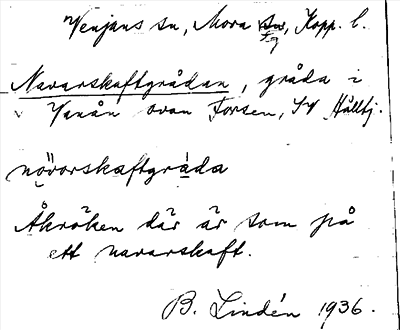 Venjans sn, Mora tg, Kopp. l.
Navarskaftgrådan, gråda i
Vanån ovan Forsen, SV Hållfj.
nǫvorskaftgrada
Åkröken där är som på
ett navarskaft.
B. Lindén 1936.